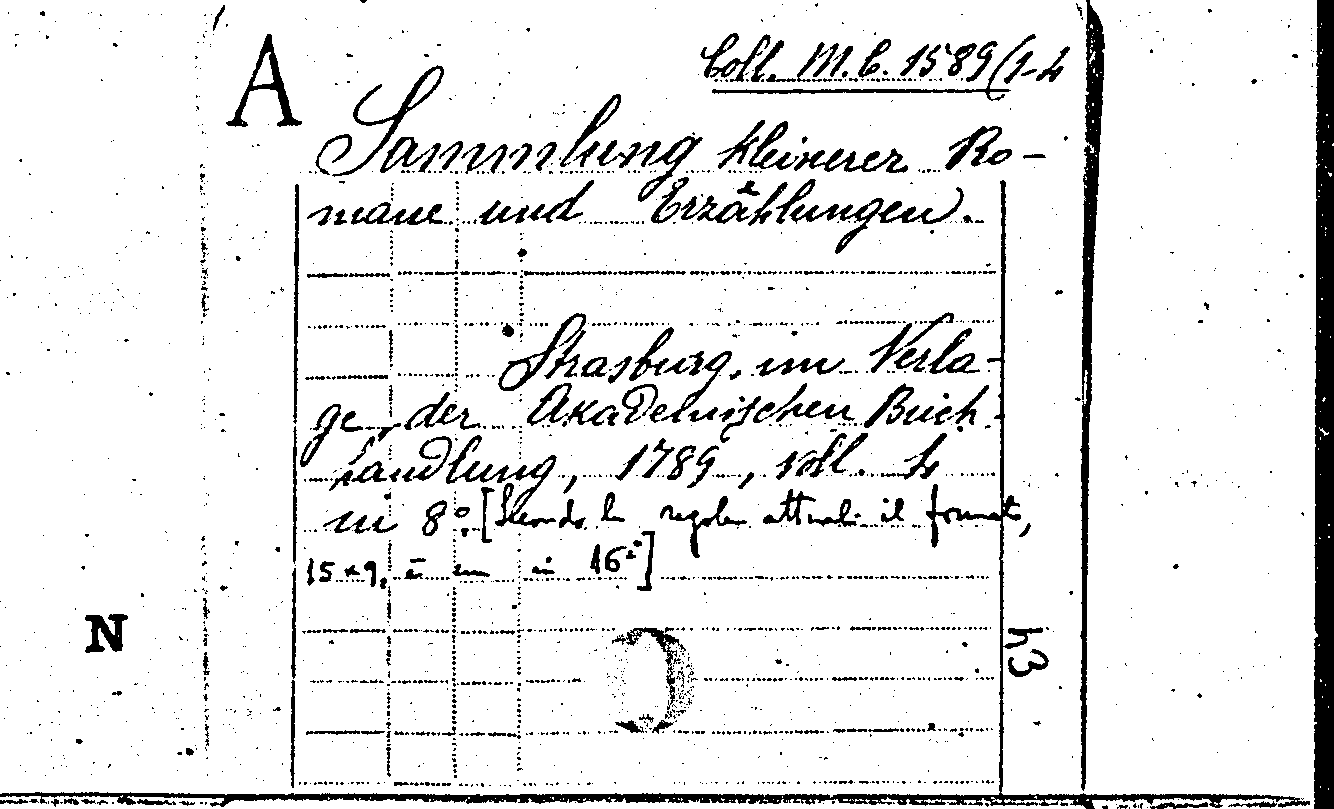 A
Coll. M.C. 1589(1-4
Sammlung kleinerer Ro-
mane und Erzählungen.
Strasburg, im Verla-
ge der Akademischen Buch-
handlung, 1789, voll. 4
in 8º. [Secondo le regole attuali il formato,
15×9, è un in 16º]
N